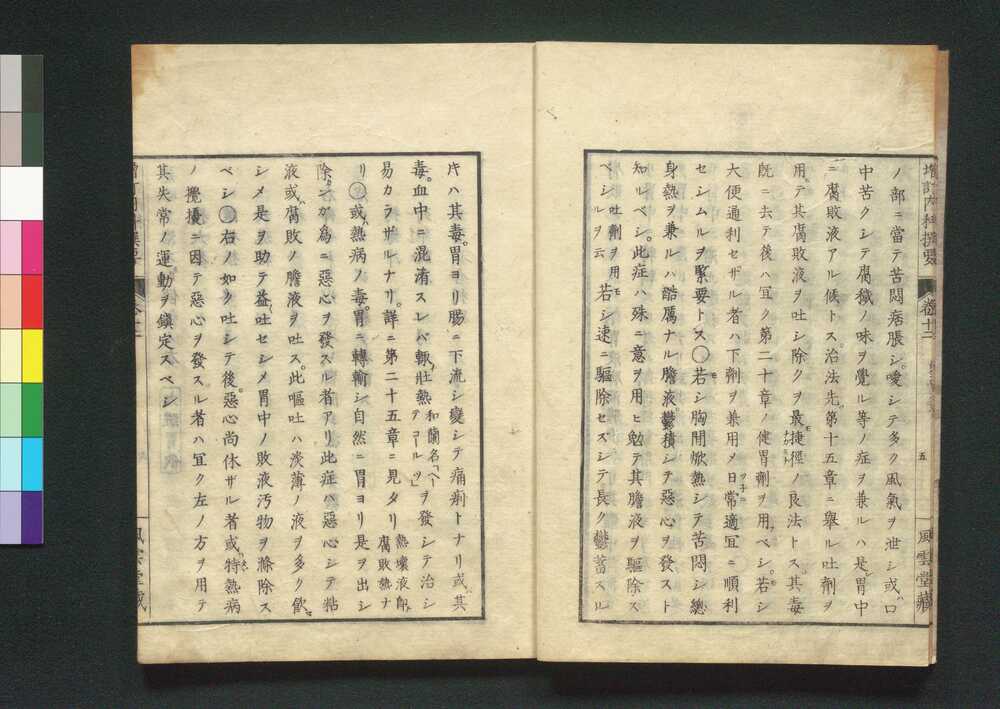 増訂内科撰要 卷十二 五 風雲堂藏
ノ部ニ當テ苦悶痞脹シ。噯シテ多ク風氣ヲ泄シ或ハ口
中苦クシテ腐穢ノ味ヲ覺ル等ノ症ヲ兼ルハ是胃中
ニ腐敗液アル候トス。治法先第十五章ニ舉ル吐劑ヲ
用テ其腐敗液ヲ吐シ除クヲ最モ捷徑ノ良法トス。其毒
既ニ去テ後ハ宜ク第二十章ノ健胃劑ヲ用ベシ。若シ
大便通利セザル者ハ下劑ヲ兼用メ日常適宜ニ順利
セシムルヲ緊要トス〇若シ胸間焮熱シテ苦悶シ總
身熱ヲ兼ルハ酷厲ナル膽液鬱積シテ惡心ヲ發スト
知ルベシ。此症ハ殊ニ意ヲ用ヒ勉テ其膽液ヲ驅除ス
ベシ吐劑ヲ用ルヲ云若シ速ニ驅除セズシテ長ク鬱蓄スル
片ハ其毒。胃ヨリ腸ニ下流シ變シテ痛痢トナリ或ハ其
毒。血中ニ混淆スレバ輙ハ壯熱和蘭名「ヘーテコールツ」ヲ發シテ治シ
易カラザルナリ。詳ニ第二十五章ニ見タリ熱壞液敗腐敗熱ナ
リ〇或ハ熱病ノ毒。胃ニ轉輸シ自然ニ胃ヨリ是ヲ出シ
除ンガ爲ニ惡心ヲ發スル者アリ此症ハ惡心シテ粘
液或ハ腐敗ノ膽液ヲ吐ス。此嘔吐ハ淡薄ノ液ヲ多ク飲
シメ是ヲ助テ益吐セシメ胃中ノ敗液汚物ヲ滌除ス
ベシ〇右ノ如ク吐シテ後。惡心尚休ザル者或ハ特熱病
ノ攪擾ニ因テ惡心ヲ發スル者ハ宜ク左ノ方ヲ用テ
其失常ノ運動ヲ鎭定スベシ
風雲堂藏